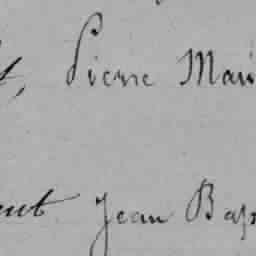 t, Pierre Mari
ent Jean Bap